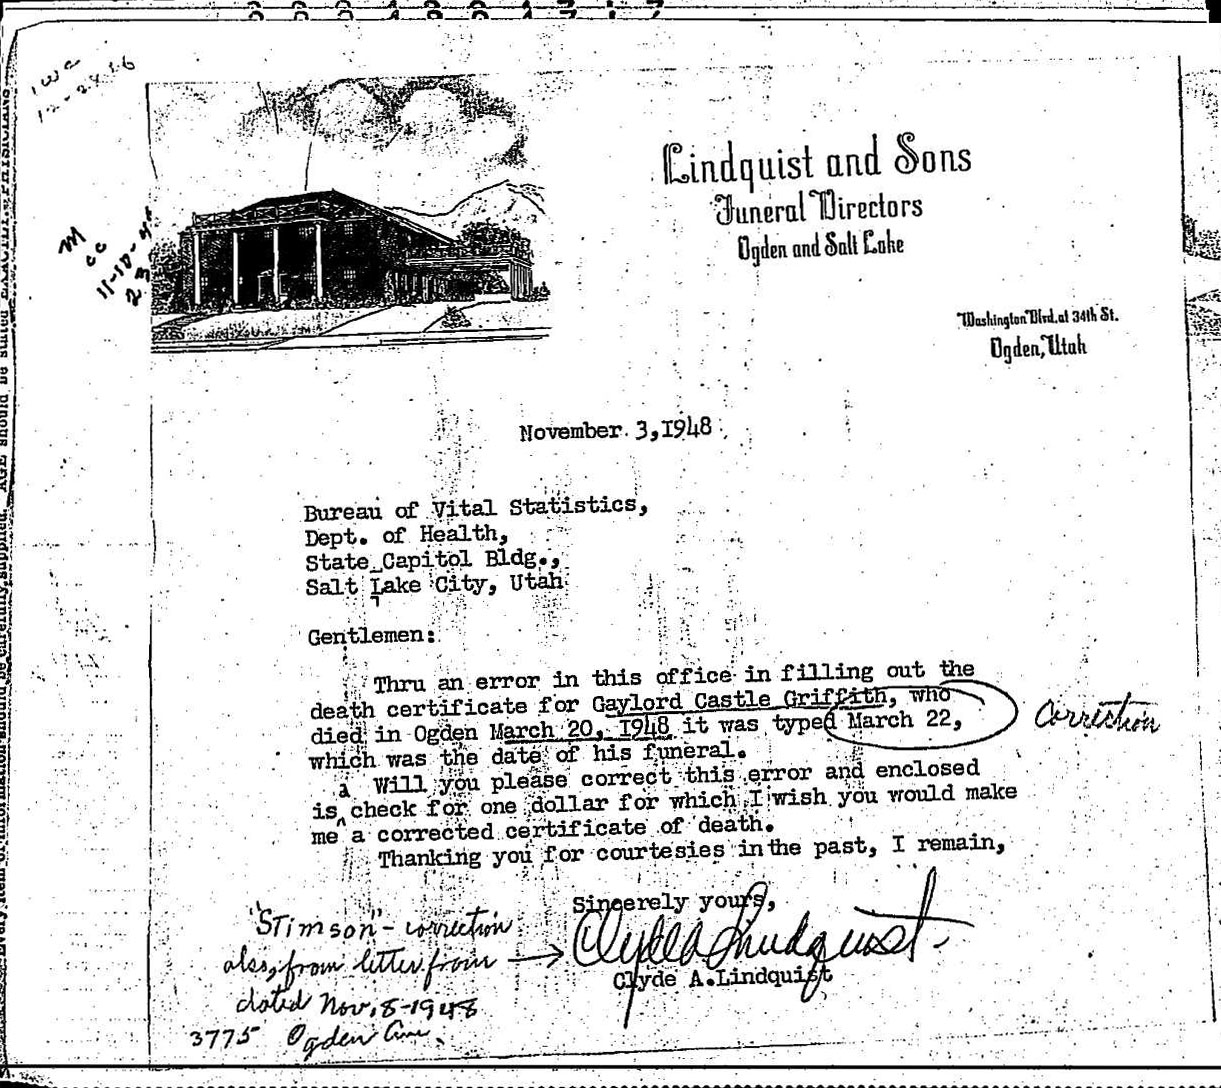 0 0 0 4 9 0 4 7 1 7
12-28-86
M
cc
11-18-48
23
Lindquist and Sons
Funeral Directors
Ogden and Salt Lake
Washington Blvd. at 34th St.
Ogden, Utah
November 3,1948
Bureau of Vital Statistics,
Dept. of Health,
State Capitol Bldg.,
Salt Lake City, Utah
Gentlemen:
Thru an error in this office in filling out the
death certificate for Gaylord Castle Griffith, who
died in Ogden March 20, 1948 it was typed March 22,
Correction
which was the date of his funeral.
Will you please correct this error and enclosed
is a check for one dollar for which I wish you would make
me a corrected certificate of death.
Thanking you for courtesies in the past, I remain,
Sincerely yours,
Clyde A Lindquist
Clyde A.Lindquist
"Stimson" - correction
also, from letter from
dated Nov. 8-1948
3775 Ogden Ave.
AGE should be stated EXACTLY. PHYSICIANS
Every item of information should be carefully supplied.